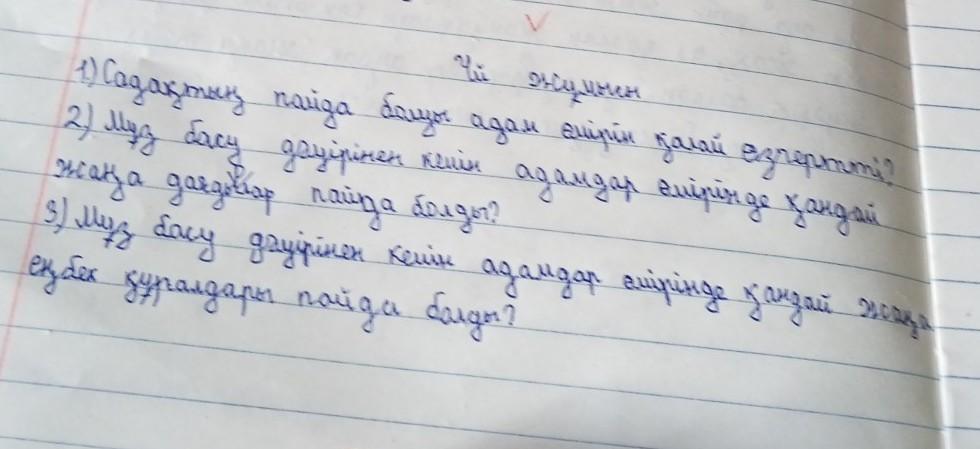 Үй жұмысы
1) Садақтың пайда болуы адам өмірін қалай өзгертті?
2) Мұз басу дәуірінен кейін адамдар өмірінде қандай
жаңа дағдылар пайда болды?
3) Мұз басу дәуірінен кейін адамдар өмірінде қандай жаңа
еңбек құралдары пайда болды?